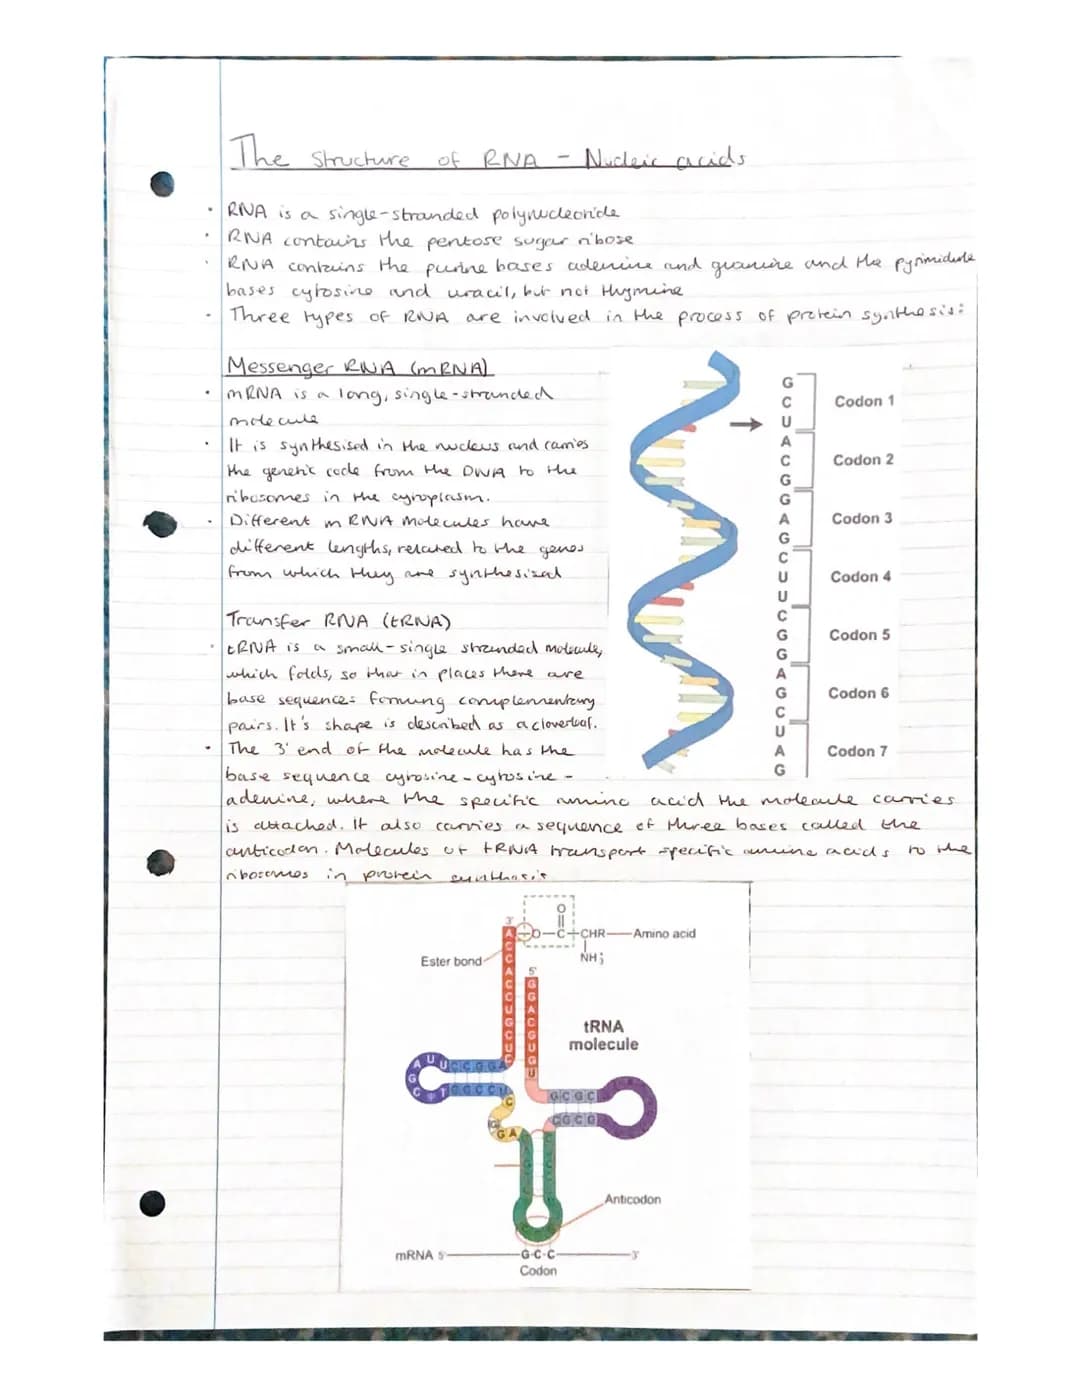 The Structure of RNA - Nucleic acids
• RNA is a single-stranded polynucleotide
• RNA contains the pentose sugar ribose
• RNA contains the purine bases adenine and guanine and the pyrimidine
bases cytosine and uracil, but not thymine
• Three types of RNA are involved in the process of protein synthesis:
Messenger RNA (mRNA)
• mRNA is a long, single-stranded
molecule
• It is synthesised in the nucleus and carries
the genetic code from the DNA to the
ribosomes in the cytoplasm.
• Different mRNA molecules have
different lengths, related to the genes
from which they are synthesised
G
C
U
A
C
G
G
A
G
C
U
U
C
G
G
A
G
C
U
A
G
Codon 1
Codon 2
Codon 3
Codon 4
Codon 5
Codon 6
Codon 7
Transfer RNA (tRNA)
• tRNA is a small-single stranded molecule,
which folds, so that in places there are
base sequences forming complementary
pairs. It's shape is described as a cloverleaf.
• The 3' end of the molecule has the
base sequence cytosine-cytosine-
adenine, where the specific amino acid the molecule carries
is attached. It also carries a sequence of three bases called the
anticodon. Molecules of tRNA transport specific amino acids to the
ribosomes in protein synthesis
O
3'
O-C-CHR
Amino acid
Ester bond
5'
A
C
C
A
C
C
U
G
C
U
C
G
G
A
C
G
U
G
U
tRNA
molecule
AUUCCGGA
G
GCGC
CGCG
C
GA
Anticodon
mRNA 5'
G-C-C
3'
Codon